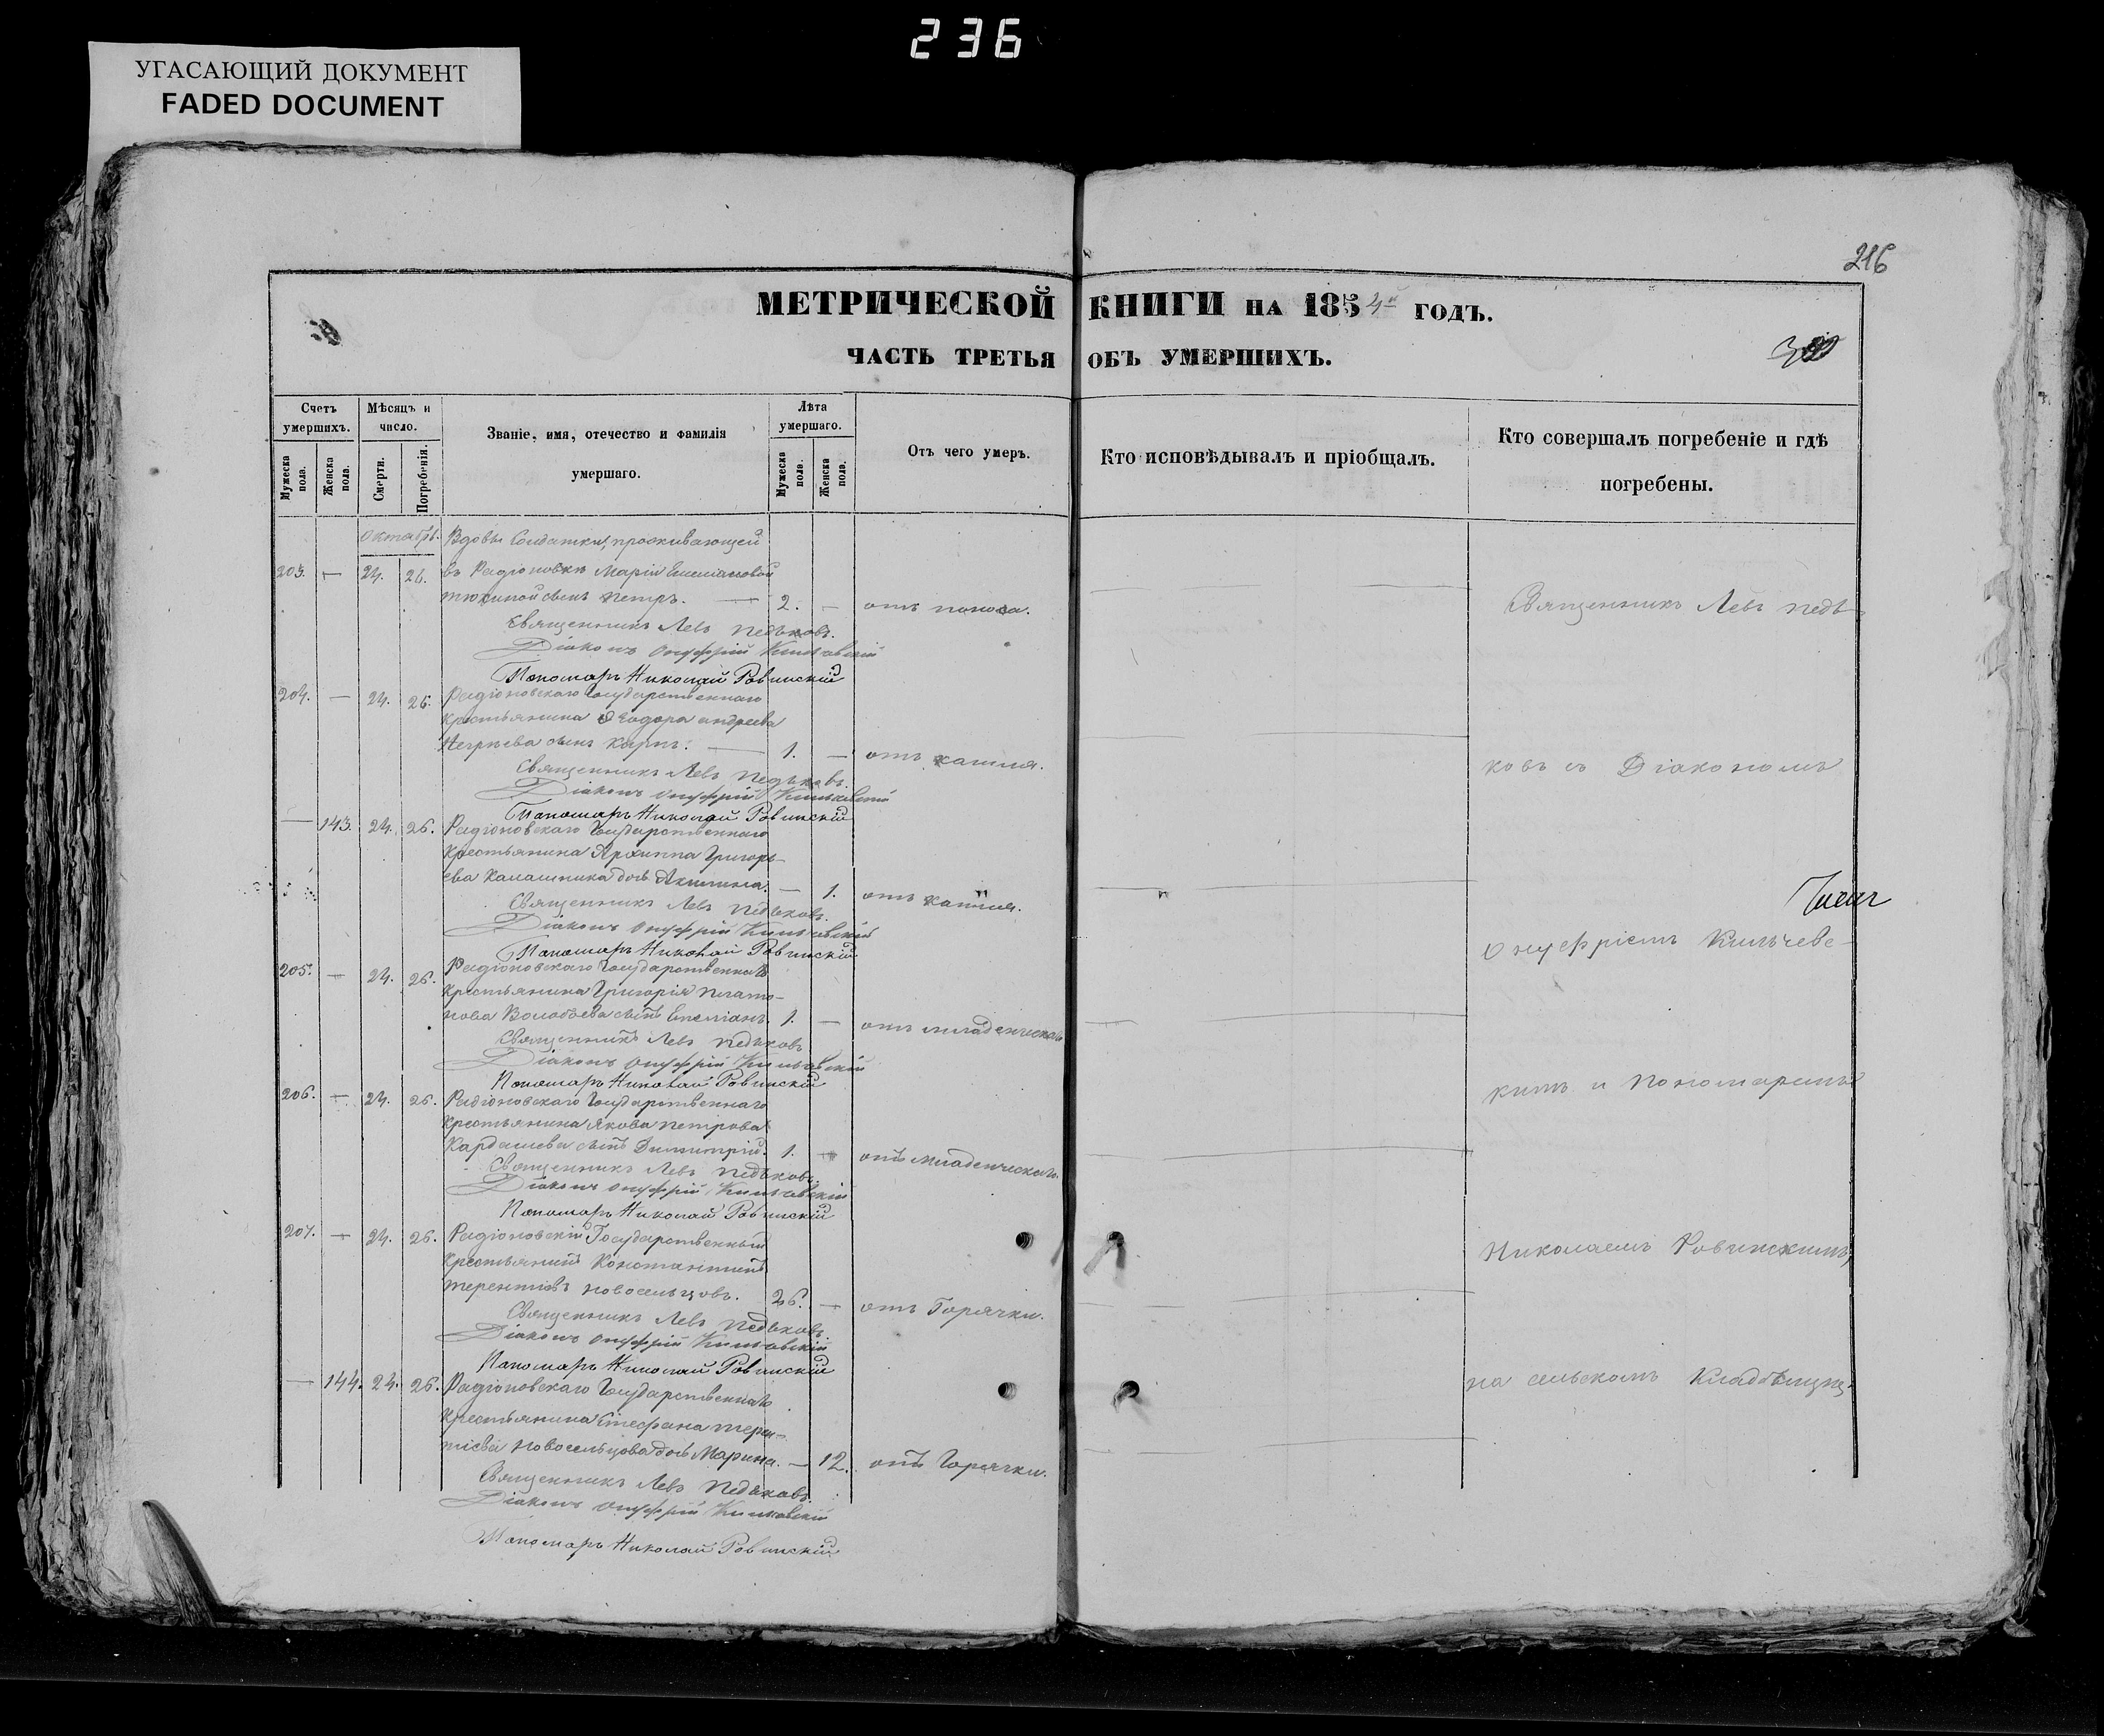 236
УГАСАЮЩИЙ ДОКУМЕНТ
FADED DOCUMENT
216
МЕТРИЧЕСКОЙ КНИГИ НА 1854й ГОДЪ.
ЧАСТЬ ТРЕТЬЯ ОБЪ УМЕРШИХЪ.
Счетъ умершихъ.
Мужеска пола.
Женска пола.
Мѣсяцъ и число.
Смерти.
Погребенія.
Званіе, имя, отечество и фамилія умершаго.
Лѣта умершаго.
Мужеска пола.
Женска пола.
Отъ чего умеръ.
Кто исповѣдывалъ и пріобщалъ.
Кто совершалъ погребеніе и гдѣ погребены.
Октябрь. Вдовы Солдатки, проживающей
203. — 24. 26. въ Радіоновкѣ Маріи Емеліановой
сынъ Петръ. — 2. — отъ поноса.
Священникъ Левъ Педьковъ.
Діаконъ Онуфрій Кильчевскій
Пономарь Николай Ровинскій
204. — 24. 26. Радіоновскаго Государственнаго
крестьянина Ѳеодора Андреева
сынъ Карпъ. — 1. — отъ кашля.
Священникъ Левъ Педьковъ.
Діаконъ Онуфрій Кильчевскій
Пономарь Николай Ровинскій
— 143. 24. 26. Радіоновскаго Государственнаго
крестьянина Архиппа Григорь-
ева Калашника дочь Акилина. — 1. отъ кашля.
Священникъ Левъ Педьковъ.
Діаконъ Онуфрій Кильчевскій
Пономарь Николай Ровинскій
205. — 24. 26. Радіоновскаго Государственнаго
крестьянина Григорія Плато-
нова сынъ Емеліанъ. 1. — отъ младенческаго
Священникъ Левъ Педьковъ
Діаконъ Онуфрій Кильчевскій
Пономарь Николай Ровинскій
206. — 24. 26. Радіоновскаго Государственнаго
крестьянина Якова Петрова
Кардашева сынъ Димитрій. 1. — отъ младенческаго.
Священникъ Левъ Педьковъ.
Діаконъ Онуфрій Кильчевскій
Пономарь Николай Ровинскій
207. — 24. 26. Радіоновскій Государственный
крестьянинъ Константинъ
Терентіевъ Новосельцовъ. 26. — отъ Горячки.
Священникъ Левъ Педьковъ.
Діаконъ Онуфрій Кильчевскій
Пономарь Николай Ровинскій
— 144. 24. 26. Радіоновскаго Государственнаго
крестьянина Стефана Терен-
тіева Новосельцова дочь Марина. — 12. отъ Горячки.
Священникъ Левъ Педьковъ.
Діаконъ Онуфрій Кильчевскій
Пономарь Николай Ровинскій
Священникъ Левъ Педь-
ковъ съ Діакономъ
Онуфріемъ Кильчевс-
кимъ и Пономаремъ
Николаемъ Ровинскимъ,
на сельскомъ Кладбищѣ.